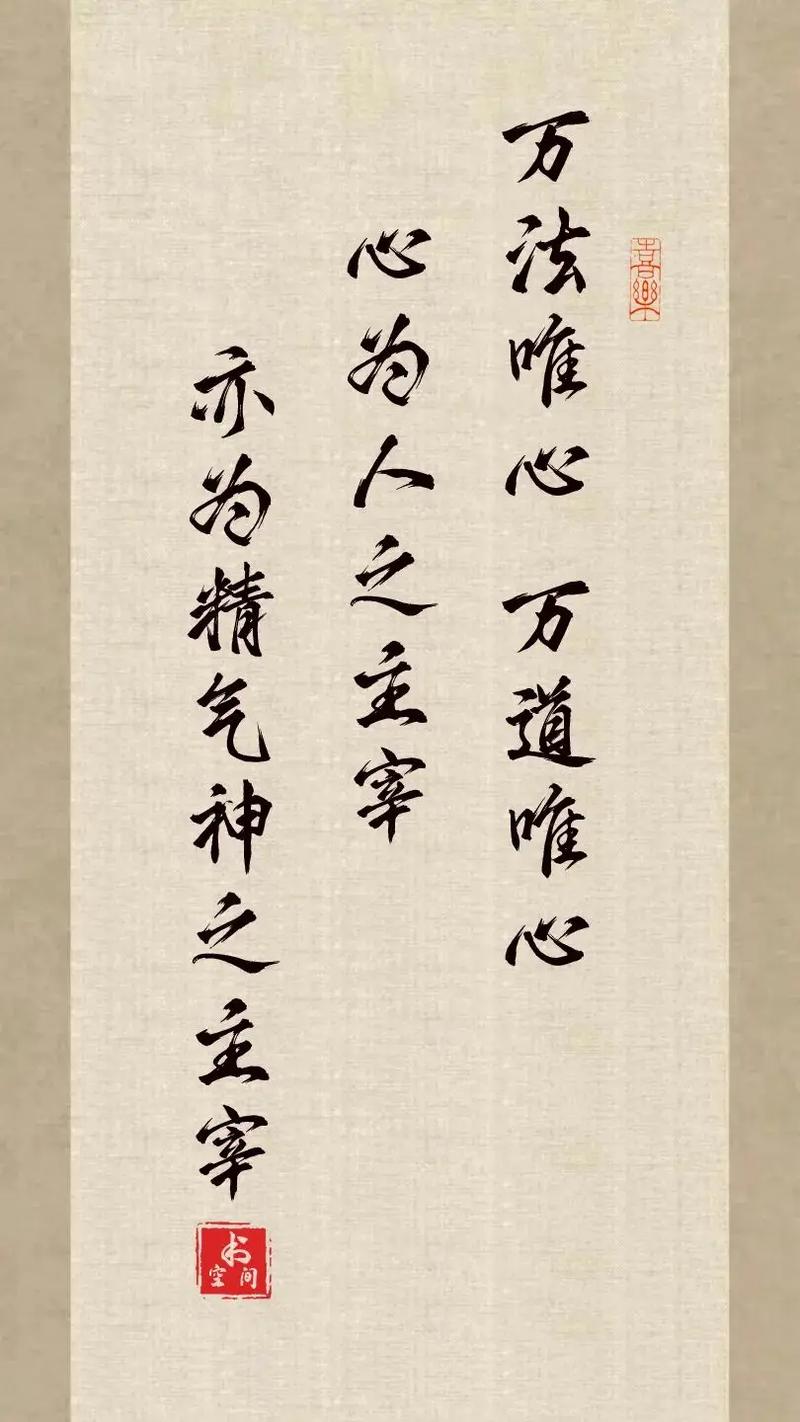 万法唯心 万道唯心
心为人之主宰
亦为精气神之主宰
喜乐
书
空间